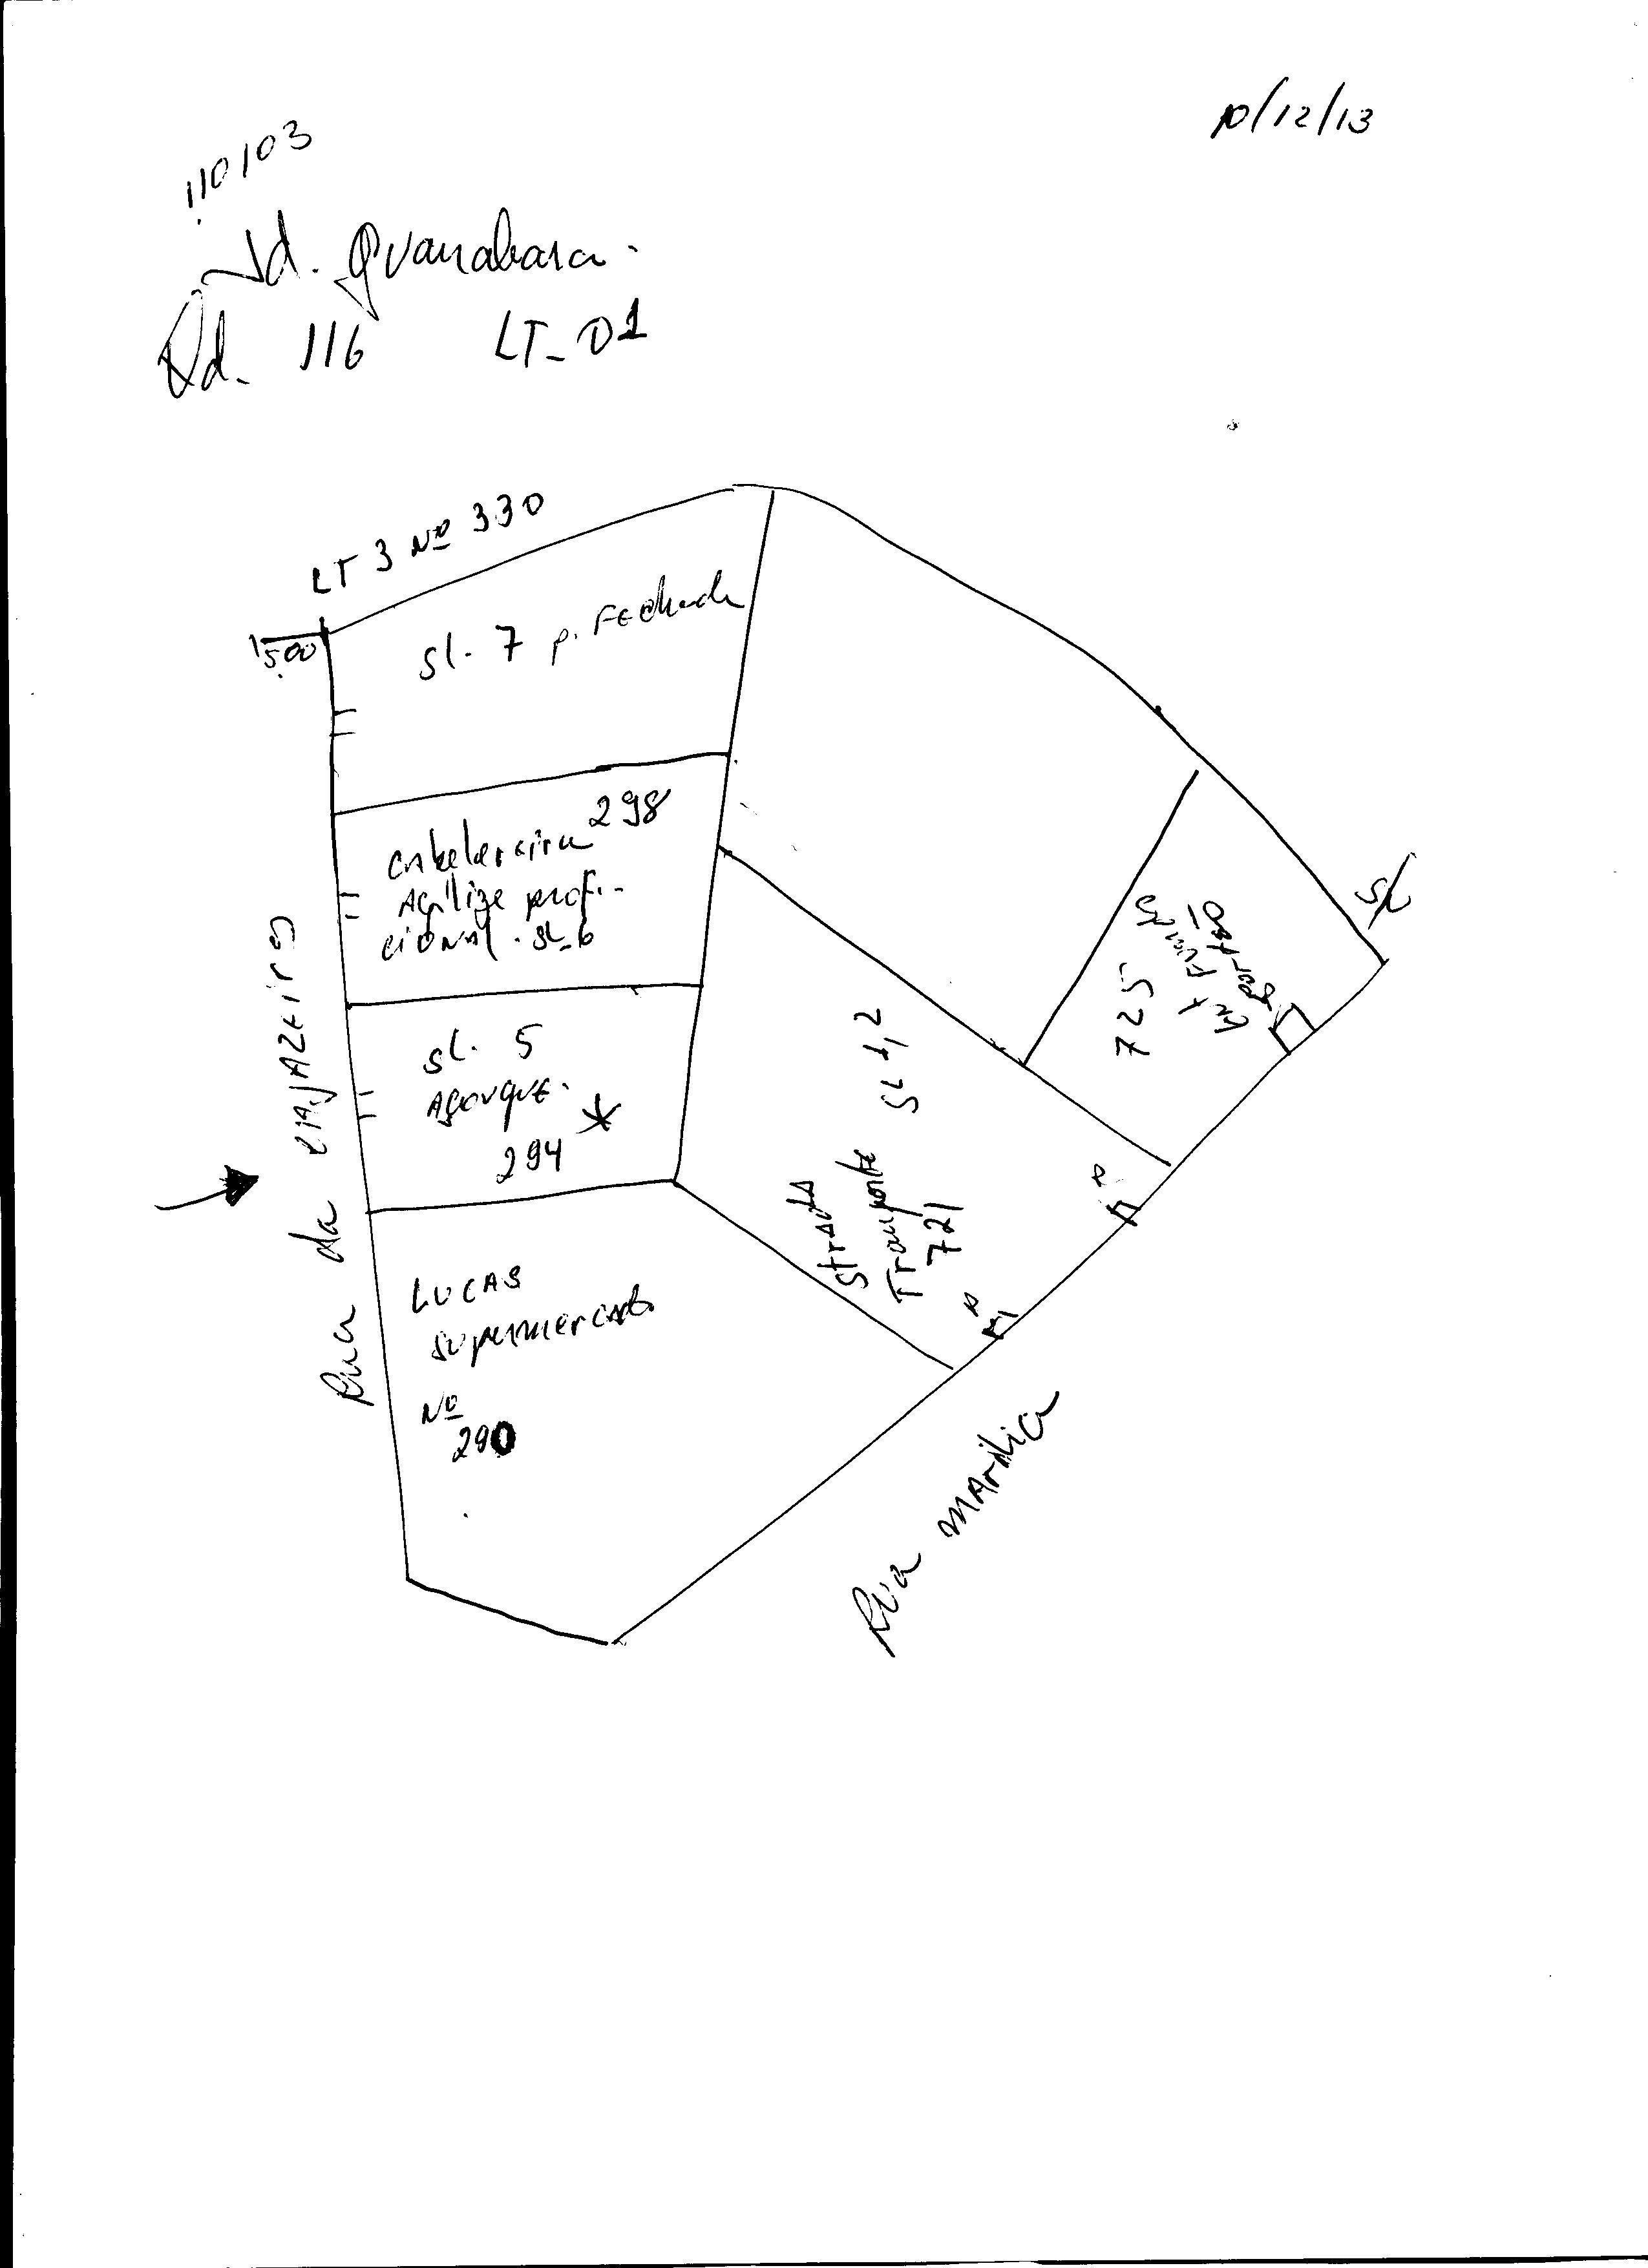 10/12/13
110103
Jd. Guanabara.
Qd. 116 LT_01
LT 3 Nº 330
15.00
Sl. 7 p. Fechada
298
cabeleireira
Agilize profi.-
cional. SL_6
SL. 5
Açougue.
294
LUCAS
supermercado
Nº
290
Rua da cajazeiras
strada
Transporte SL 1,2
721
725
Ent Fundo
portão
Rua Marilia